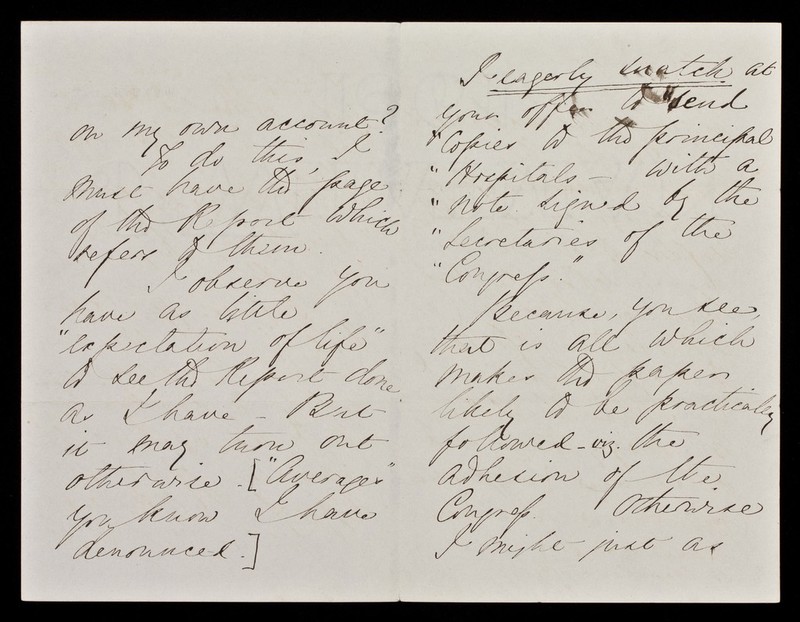 on my own account?
To do this, I
must have the page
of the Report which
refers to them.
I observe you
have as little
"expectation of life"
to see the Report done
as I have - But
it may turn out
otherwise. ["Averages"
you know I have
denounced.]
I eagerly snatch at
your offer to "send
"Copies to the principal
"Hospitals - with a
"Note signed by the
"Secretaries of the
"Congress."
Because, you see,
that is all which
makes the paper
likely to be practically
followed - viz. the
adhesion of the
Congress. Otherwise
I might just as